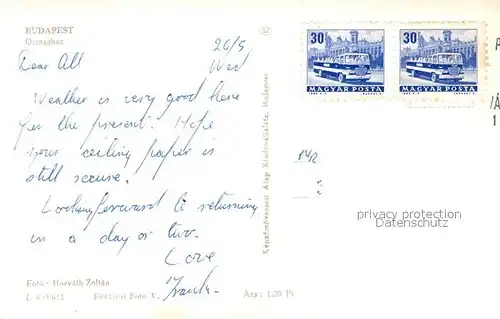 BUDAPEST
Országház
26/5
Dear All Wed
Weather is very good here
for the present. Hope
your ceiling paper is
still secure.
Looking forward to returning
in a day or two.
Love
Frank.
Foto: Horváth Zoltán
Főfotós Foto V. Ára: 1,20 Ft
Képzőművészeti Alap Kiadóvállalata, Budapest
30 30
MAGYAR POSTA MAGYAR POSTA
P
VÁ
1
M/R
privacy protection
Datenschutz